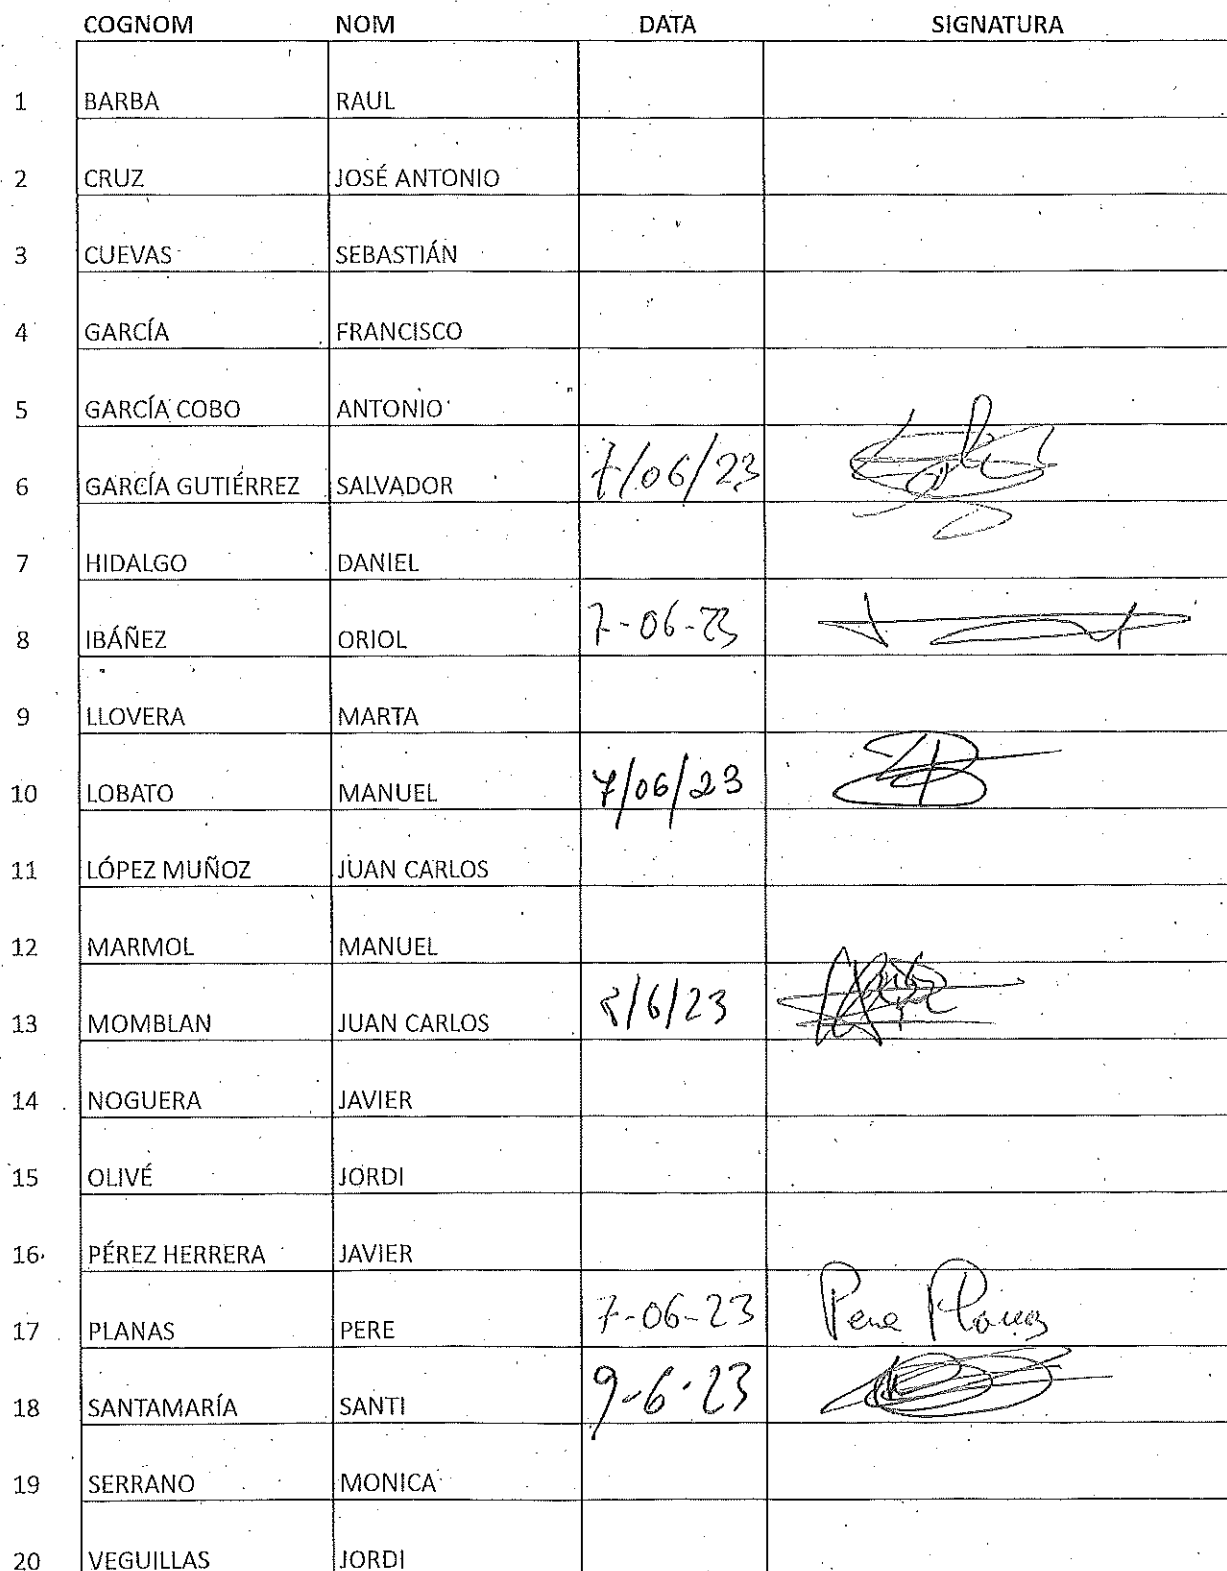 COGNOM NOM DATA SIGNATURA
1 BARBA RAUL
2 CRUZ JOSÉ ANTONIO
3 CUEVAS SEBASTIÁN
4 GARCÍA FRANCISCO
5 GARCÍA COBO ANTONIO
6 GARCÍA GUTIÉRREZ SALVADOR 7/06/23
7 HIDALGO DANIEL
8 IBÁÑEZ ORIOL 7-06-23
9 LLOVERA MARTA
10 LOBATO MANUEL 7/06/23
11 LÓPEZ MUÑOZ JUAN CARLOS
12 MARMOL MANUEL
13 MOMBLAN JUAN CARLOS 8/6/23
14 NOGUERA JAVIER
15 OLIVÉ JORDI
16 PÉREZ HERRERA JAVIER
17 PLANAS PERE 7-06-23 Pere Planas
18 SANTAMARÍA SANTI 9-6-23
19 SERRANO MONICA
20 VEGUILLAS JORDI